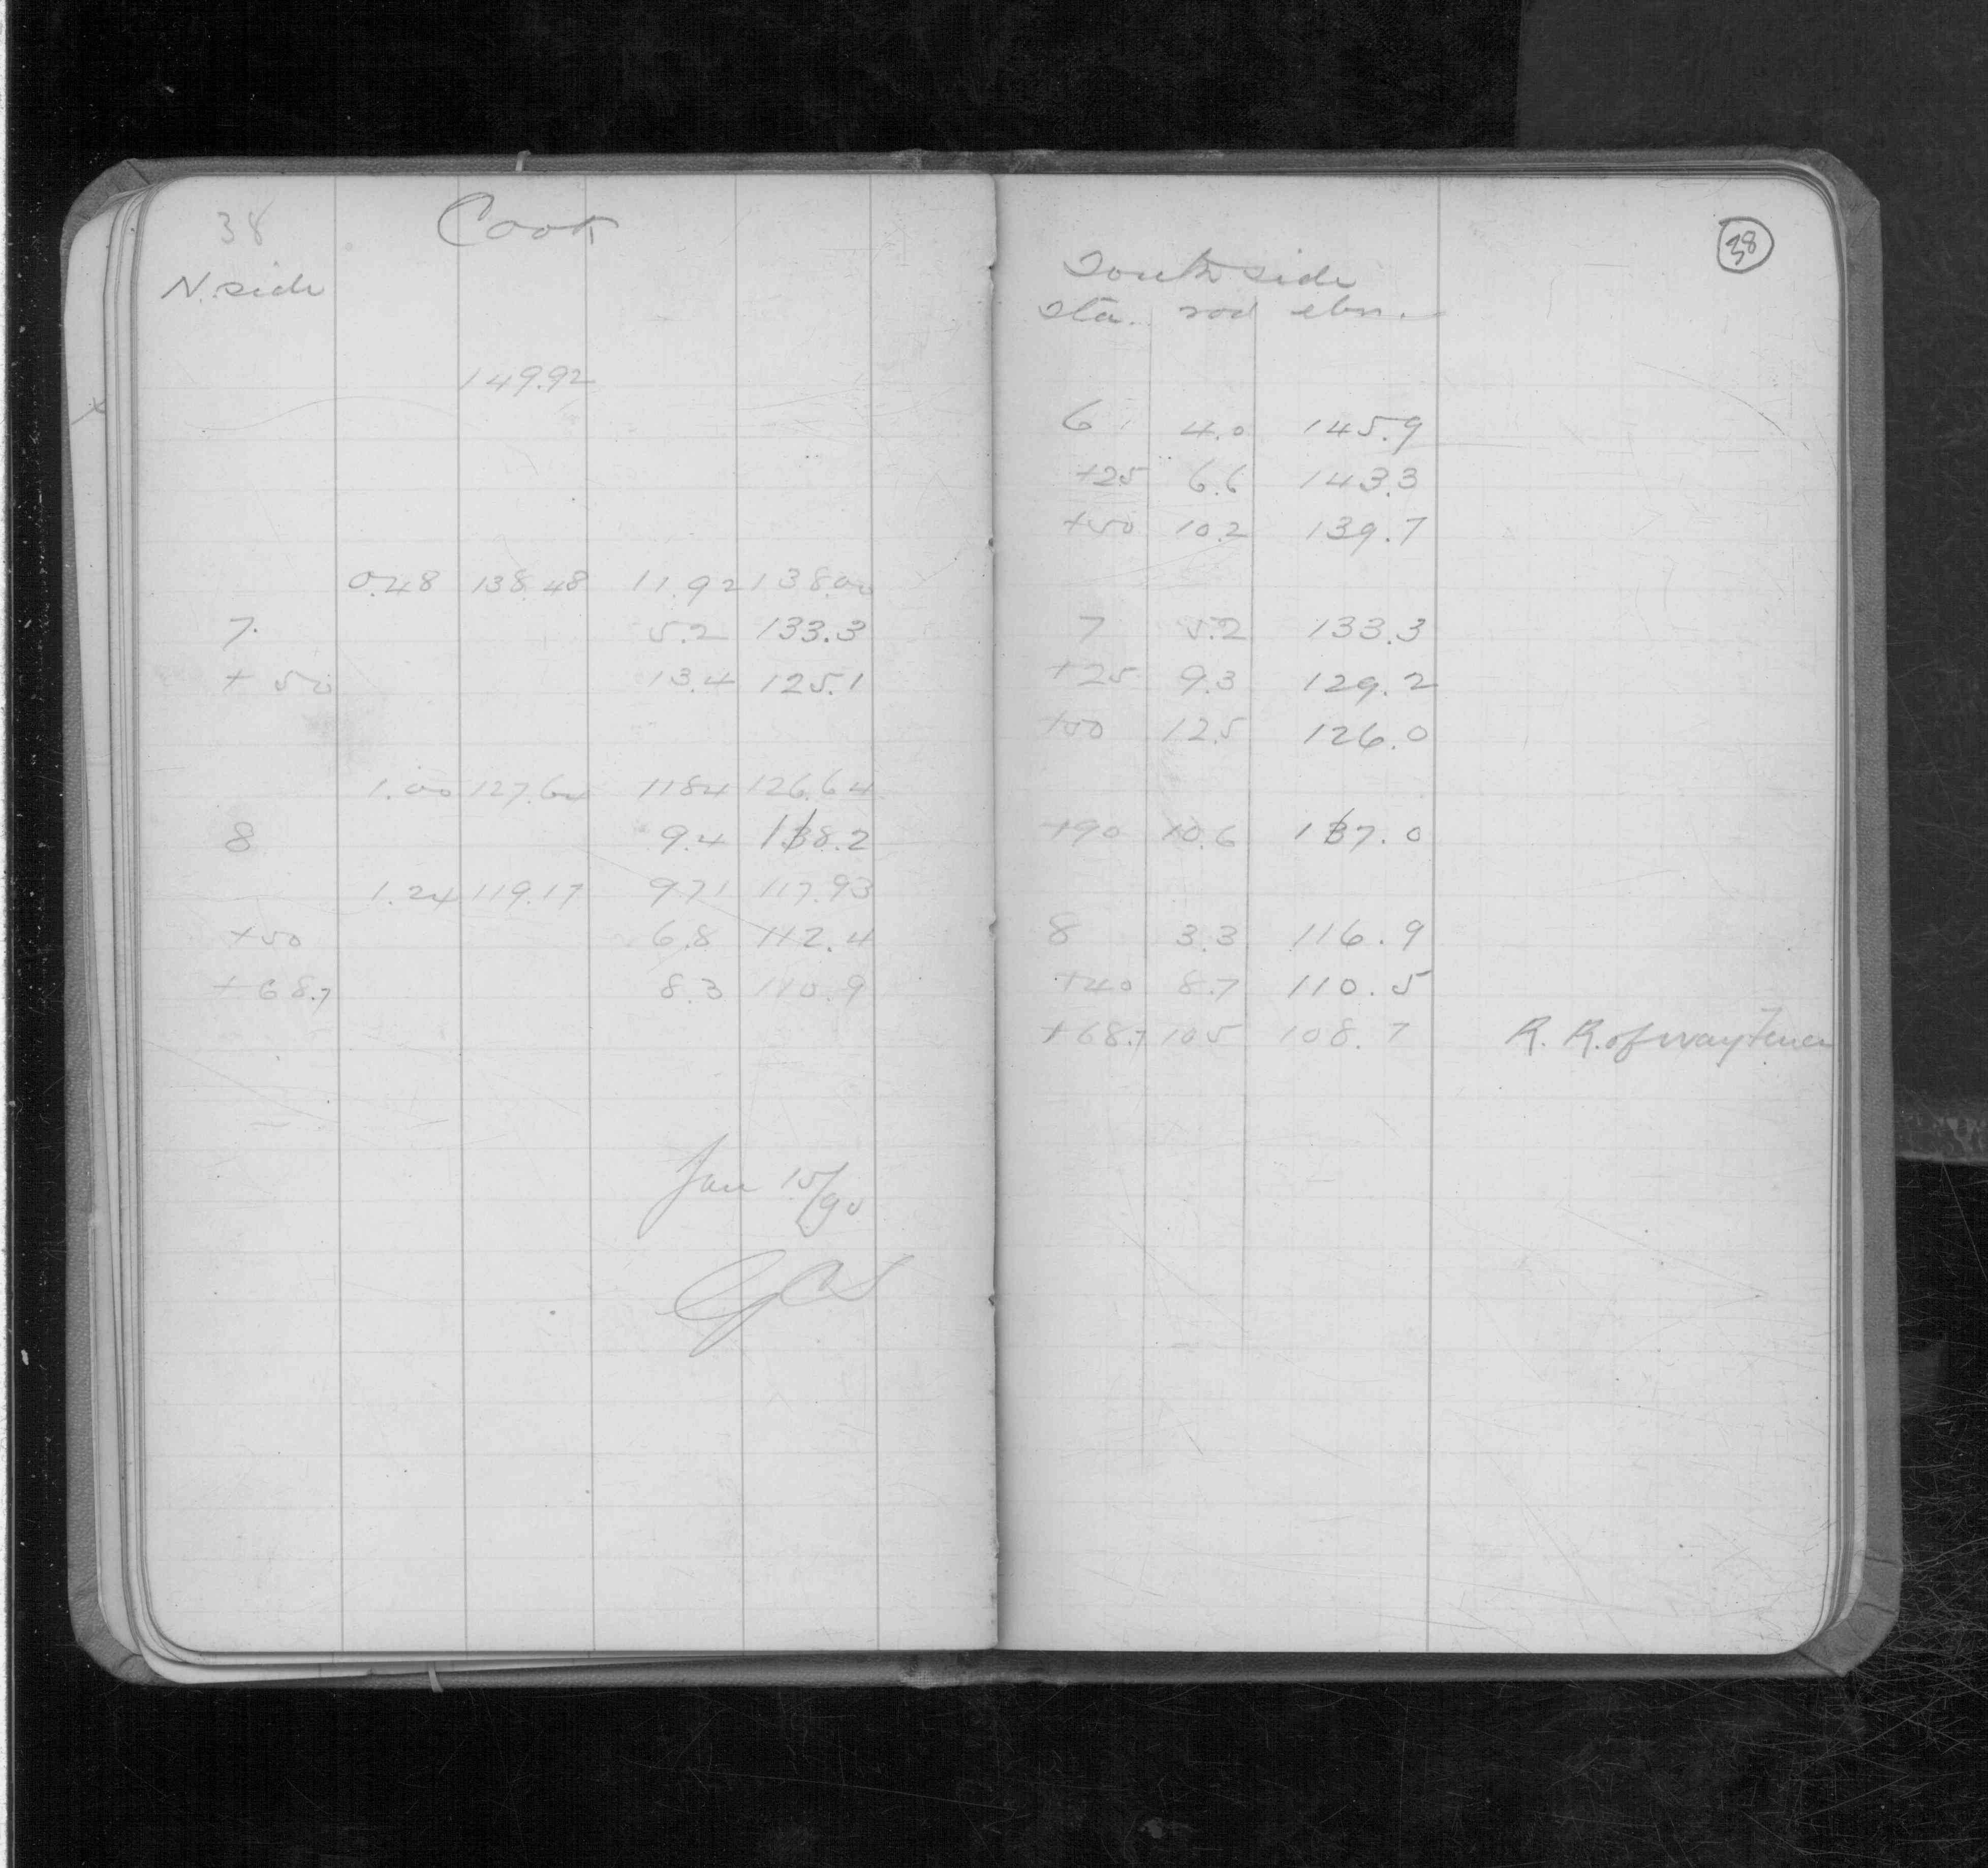 38 Cook
N. side
149.92
0.48 138.48 11.92 138.00
7. 5.2 133.3
+50 13.4 125.1
1.00 127.64 1184 126.64
8 9.4 118.2
1.24 119.17 971 117.93
+50 6.8 112.4
+68.7 8.3 110.9
Jan 15/90
38
South side
sta. rod elvn.
6 4.0 145.9
+25 6.6 143.3
+50 10.2 139.7
7 5.2 133.3
+25 9.3 129.2
+50 12.5 126.0
+90 10.6 117.0
8 3.3 116.9
+40 8.7 110.5
+68.7 105 108.7 R. R. of way fence